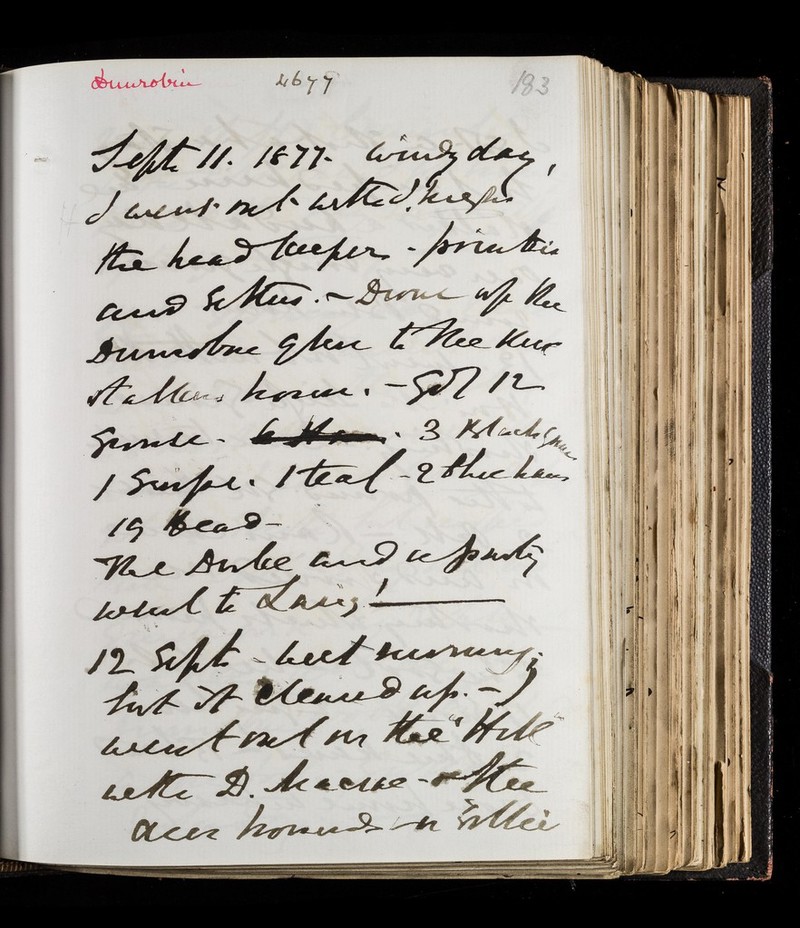 Dunrobin 4677 183
Sept 11. 1877. Windy day,
I went out with J.
the head keeper - pointers
and Setters. - Drove up the
Dunrobin glen to the
stalkers house. - Got 12
Grouse - 3 Black Game
1 Snipe. 1 teal - 2 blue hares
19 head -
The Duke and a party
went to Lairg! -
12 Sept - wet morning;
but it cleared up. - I
went out on the "Hill"
with D. Macrae - & the
deer hounds